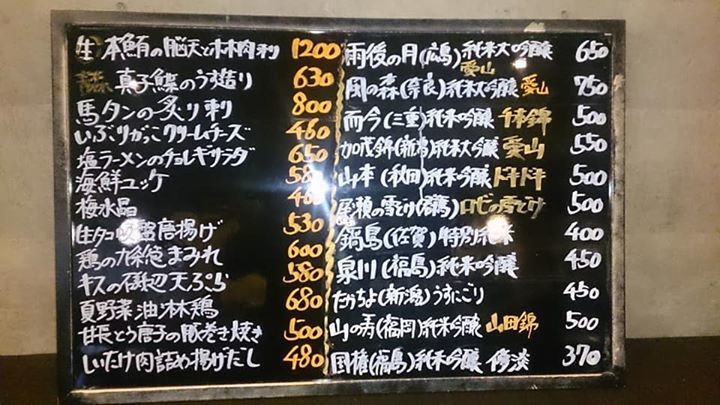 生 本鮪の脳天とホホ肉刺 1200
真子鰈のうす造り 630
馬タンの炙り刺 800
いぶりがっこクリームチーズ 460
塩ラーメンのチョレギサラダ 650
海鮮ユッケ
梅水晶
生タコ 唐揚げ 530
鶏の九条葱まみれ 600
キスの磯辺天ぷら 580
夏野菜油淋鶏 680
甘長とう唐子の豚巻き焼き 500
しいたけ肉詰め揚げだし 480
雨後の月(広島)純米大吟醸 愛山 650
風の森(奈良)純米大吟醸 愛山 750
而今(三重)純米吟醸 千本錦 500
加茂錦(新潟)純米大吟醸 愛山 550
山本(秋田)純米吟醸 ドキドキ 500
ロ万の雪どけ 500
鍋島(佐賀)特別純米 400
泉川(福島)純米吟醸 450
たかちよ(新潟)うすにごり 450
山の寿(福岡)純米吟醸 山田錦 500
国権(福島)純米吟醸 370